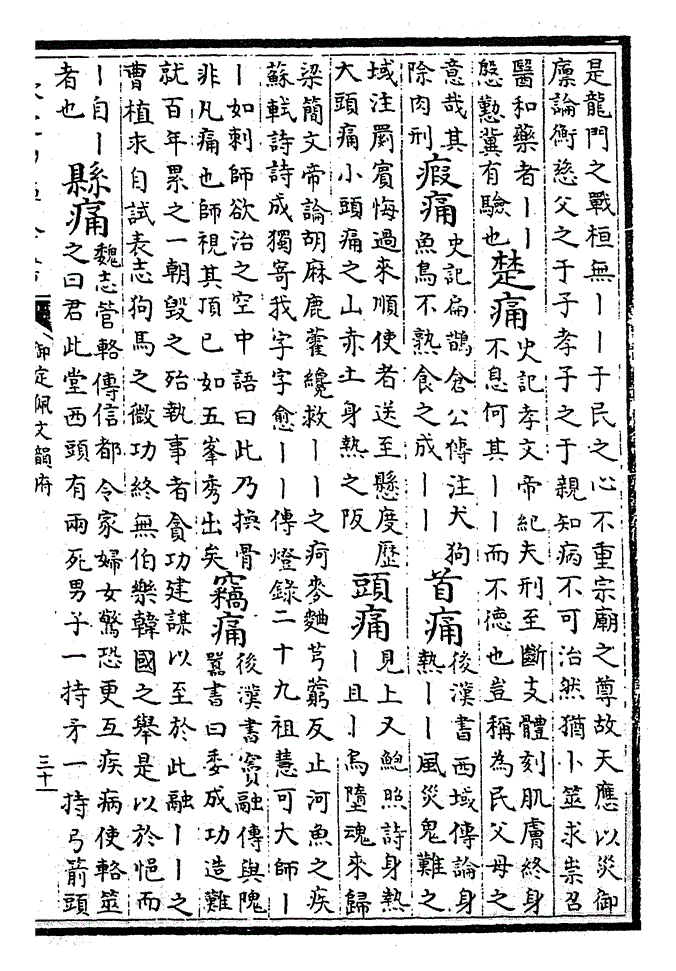 是龍門之戰桓無丨丨于民之心不重宗廟之尊故天應以災御
廪論衡慈父之于子孝子之于親知病不可治然猶卜筮求祟召
醫和藥者丨丨
慇懃冀有驗也
楚痛
史記孝文帝紀夫刑至斷支體刻肌膚終身
不息何其丨丨而不德也豈稱為民父母之
意哉其
除肉刑
瘕痛
史記扁鵲倉公傳注犬狗
魚鳥不熟食之成丨丨
首痛
後漢書西域傳論身
熱丨丨風災鬼難之
域注罽賓悔過來順使者送至懸度歷
大頭痛小頭痛之山赤土身熱之阪
頭痛
見上又鮑照詩身熱
丨且丨鳥墮魂來歸
梁簡文帝論胡麻鹿藿纔救丨丨之疴麥麯芎藭反止河魚之疾
蘇軾詩詩成獨寄我字字愈丨丨傳燈錄二十九祖慧可大師丨
丨如刺師欲治之空中語曰此乃換骨
非凡痛也師視其頂已如五峯秀出矣
竊痛
後漢書竇融傳與隗
囂書曰委成功造難
就百年累之一朝毀之殆執事者貪功建謀以至於此融丨丨之
曹植求自試表志狗馬之微功終無伯樂韓國之舉是以於悒而
丨自丨
者也
縣痛
魏志管輅傳信都令家婦女驚恐更互疾病使輅筮
之曰君此堂西頭有兩死男子一持矛一持弓箭頭
御定佩文韻府
三十一